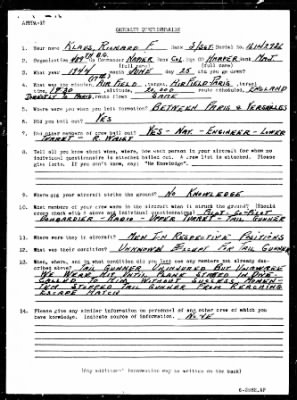 CASUALTY QUESTIONNAIRE
1. Your name KLAUS, RICHARD F Rank S/SGT Serial No. 16141926
2. Organization Gp Commander HARPER Rank COL Sqn CO HARPER Rank MAJ
(full name) (full name)
3. What year 1944 month JUNE day 25 did you go down?
4. What was the mission, AIR FIELD, target, AIRFIELD PARIS, target
time, altitude, 20,000 route scheduled, ENGLAND
DIRECT TO PARIS route flown SAME
5. Where were you when you left formation? BETWEEN PARIS & VERSAILLES
6. Did you bail out? YES
7. Did other members of crew bail out? YES - NAV. - ENGINEER - LOWER
TURRET - R WAIST
8. Tell all you know about when, where, how each person in your aircraft for whom no
individual questionnaire is attached bailed out. A crew list is attached. Please
give facts. If you don't know, say: "No Knowledge".
9. Where did your aircraft strike the ground? NO KNOWLEDGE
10. What members of your crew were in the aircraft when it struck the ground? (Should
cross check with 8 above and individual questionnaires) PILOT CO-PILOT
BOMBARDIER - RADIO - UPPER TURRET - TAIL GUNNER
11. Where were they in aircraft? MEN IN RESPECTIVE POSITIONS
12. What was their condition? UNKNOWN EXCEPT FOR TAIL GUNNER
13. When, where, and in what condition did you last see any members not already des-
cribed above? TAIL GUNNER UNINJURED BUT UNAWARE
WE WERE HIT UNTIL PLANE STARTED IN DIVE.
CALLED TO HIM WITHOUT SUCCESS. MOMEN-
TUM STOPPED TAIL GUNNER FROM REACHING
ESCAPE HATCH
14. Please give any similar information on personnel of any other crew of which you
have knowledge. Indicate source of information. NONE
(Any additional information may be written on the back)
6-3882,AF